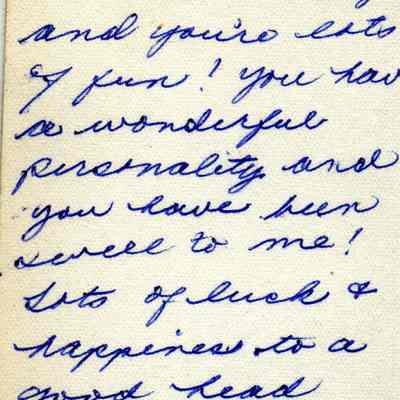 and you're lots
of fun! you hav
a wonderful
personality and
you have been
swell to me!
Lots of luck &
happiness to a
good head